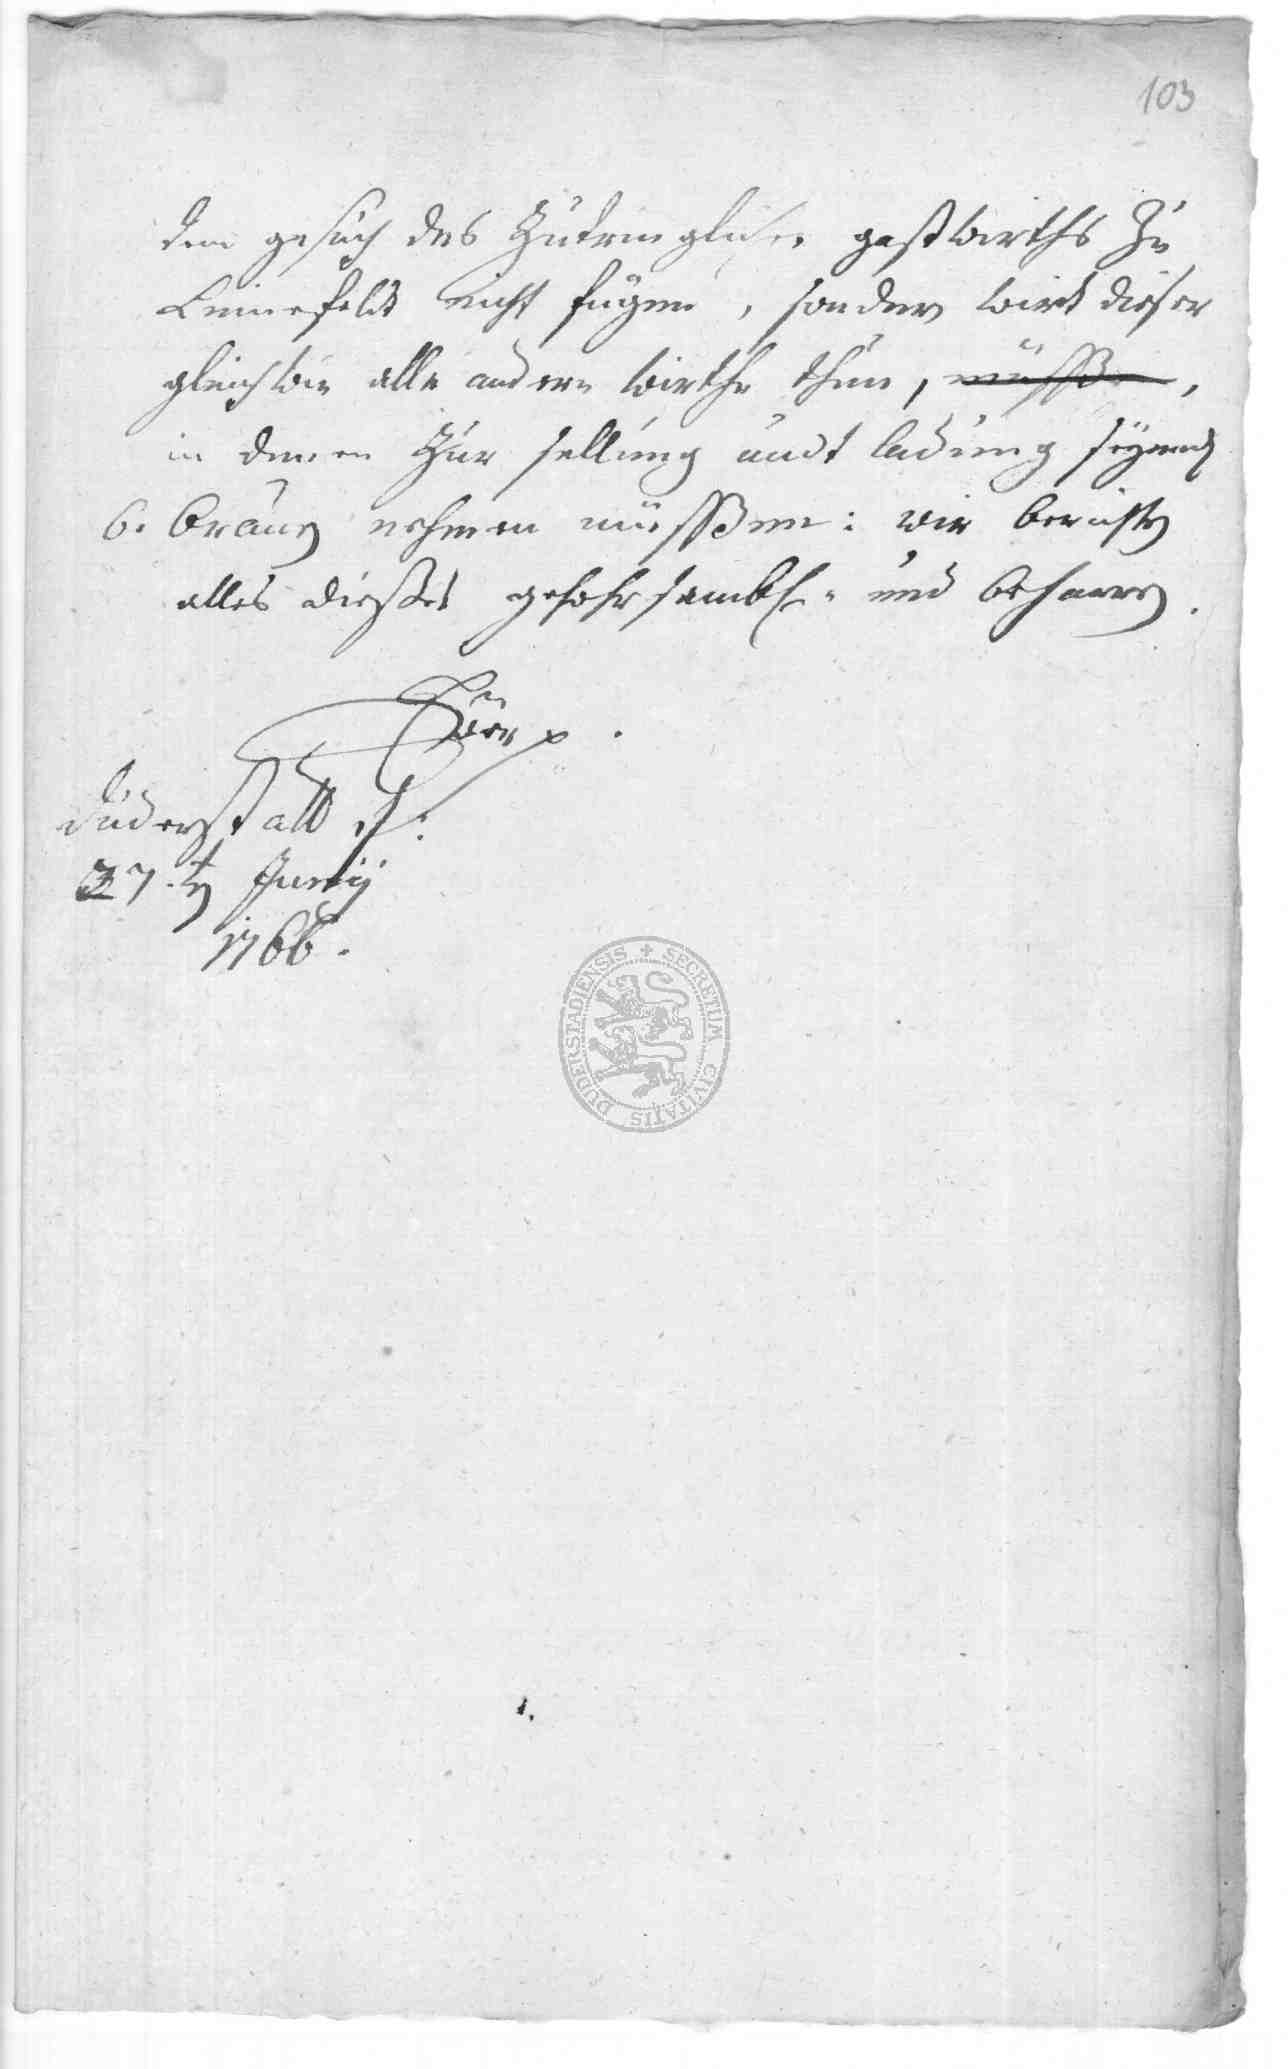 103
dem gesuch des Zudringlichen gastwirths Zu
Leinefeldt nicht fügen, sondern wirdt dieser
gleich wie alle andere wirthe thun, müssßen,
in denen Zur fellung undt ladung seyend
6. bräuen nehmen müssßen: wir berichten
alles dießes gehorsambst und beharren.
Euer p.
Duderstatt d:
27.ten Junij
1766.
SECRETUM CIVITATIS DUDERSTADIENSIS